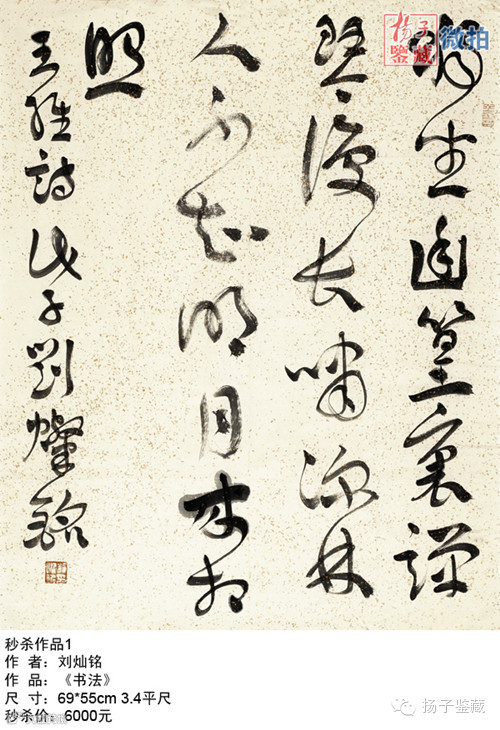 扬子鑒藏
微拍
獨坐幽篁裏彈
琴復长嘯深林
人不知明月來相
照
王維詩 戊子劉燦銘
秒杀作品1
作 者：刘灿铭
作 品：《书法》
尺 寸：69*55cm 3.4平尺
秒杀价：6000元
扬子鉴藏